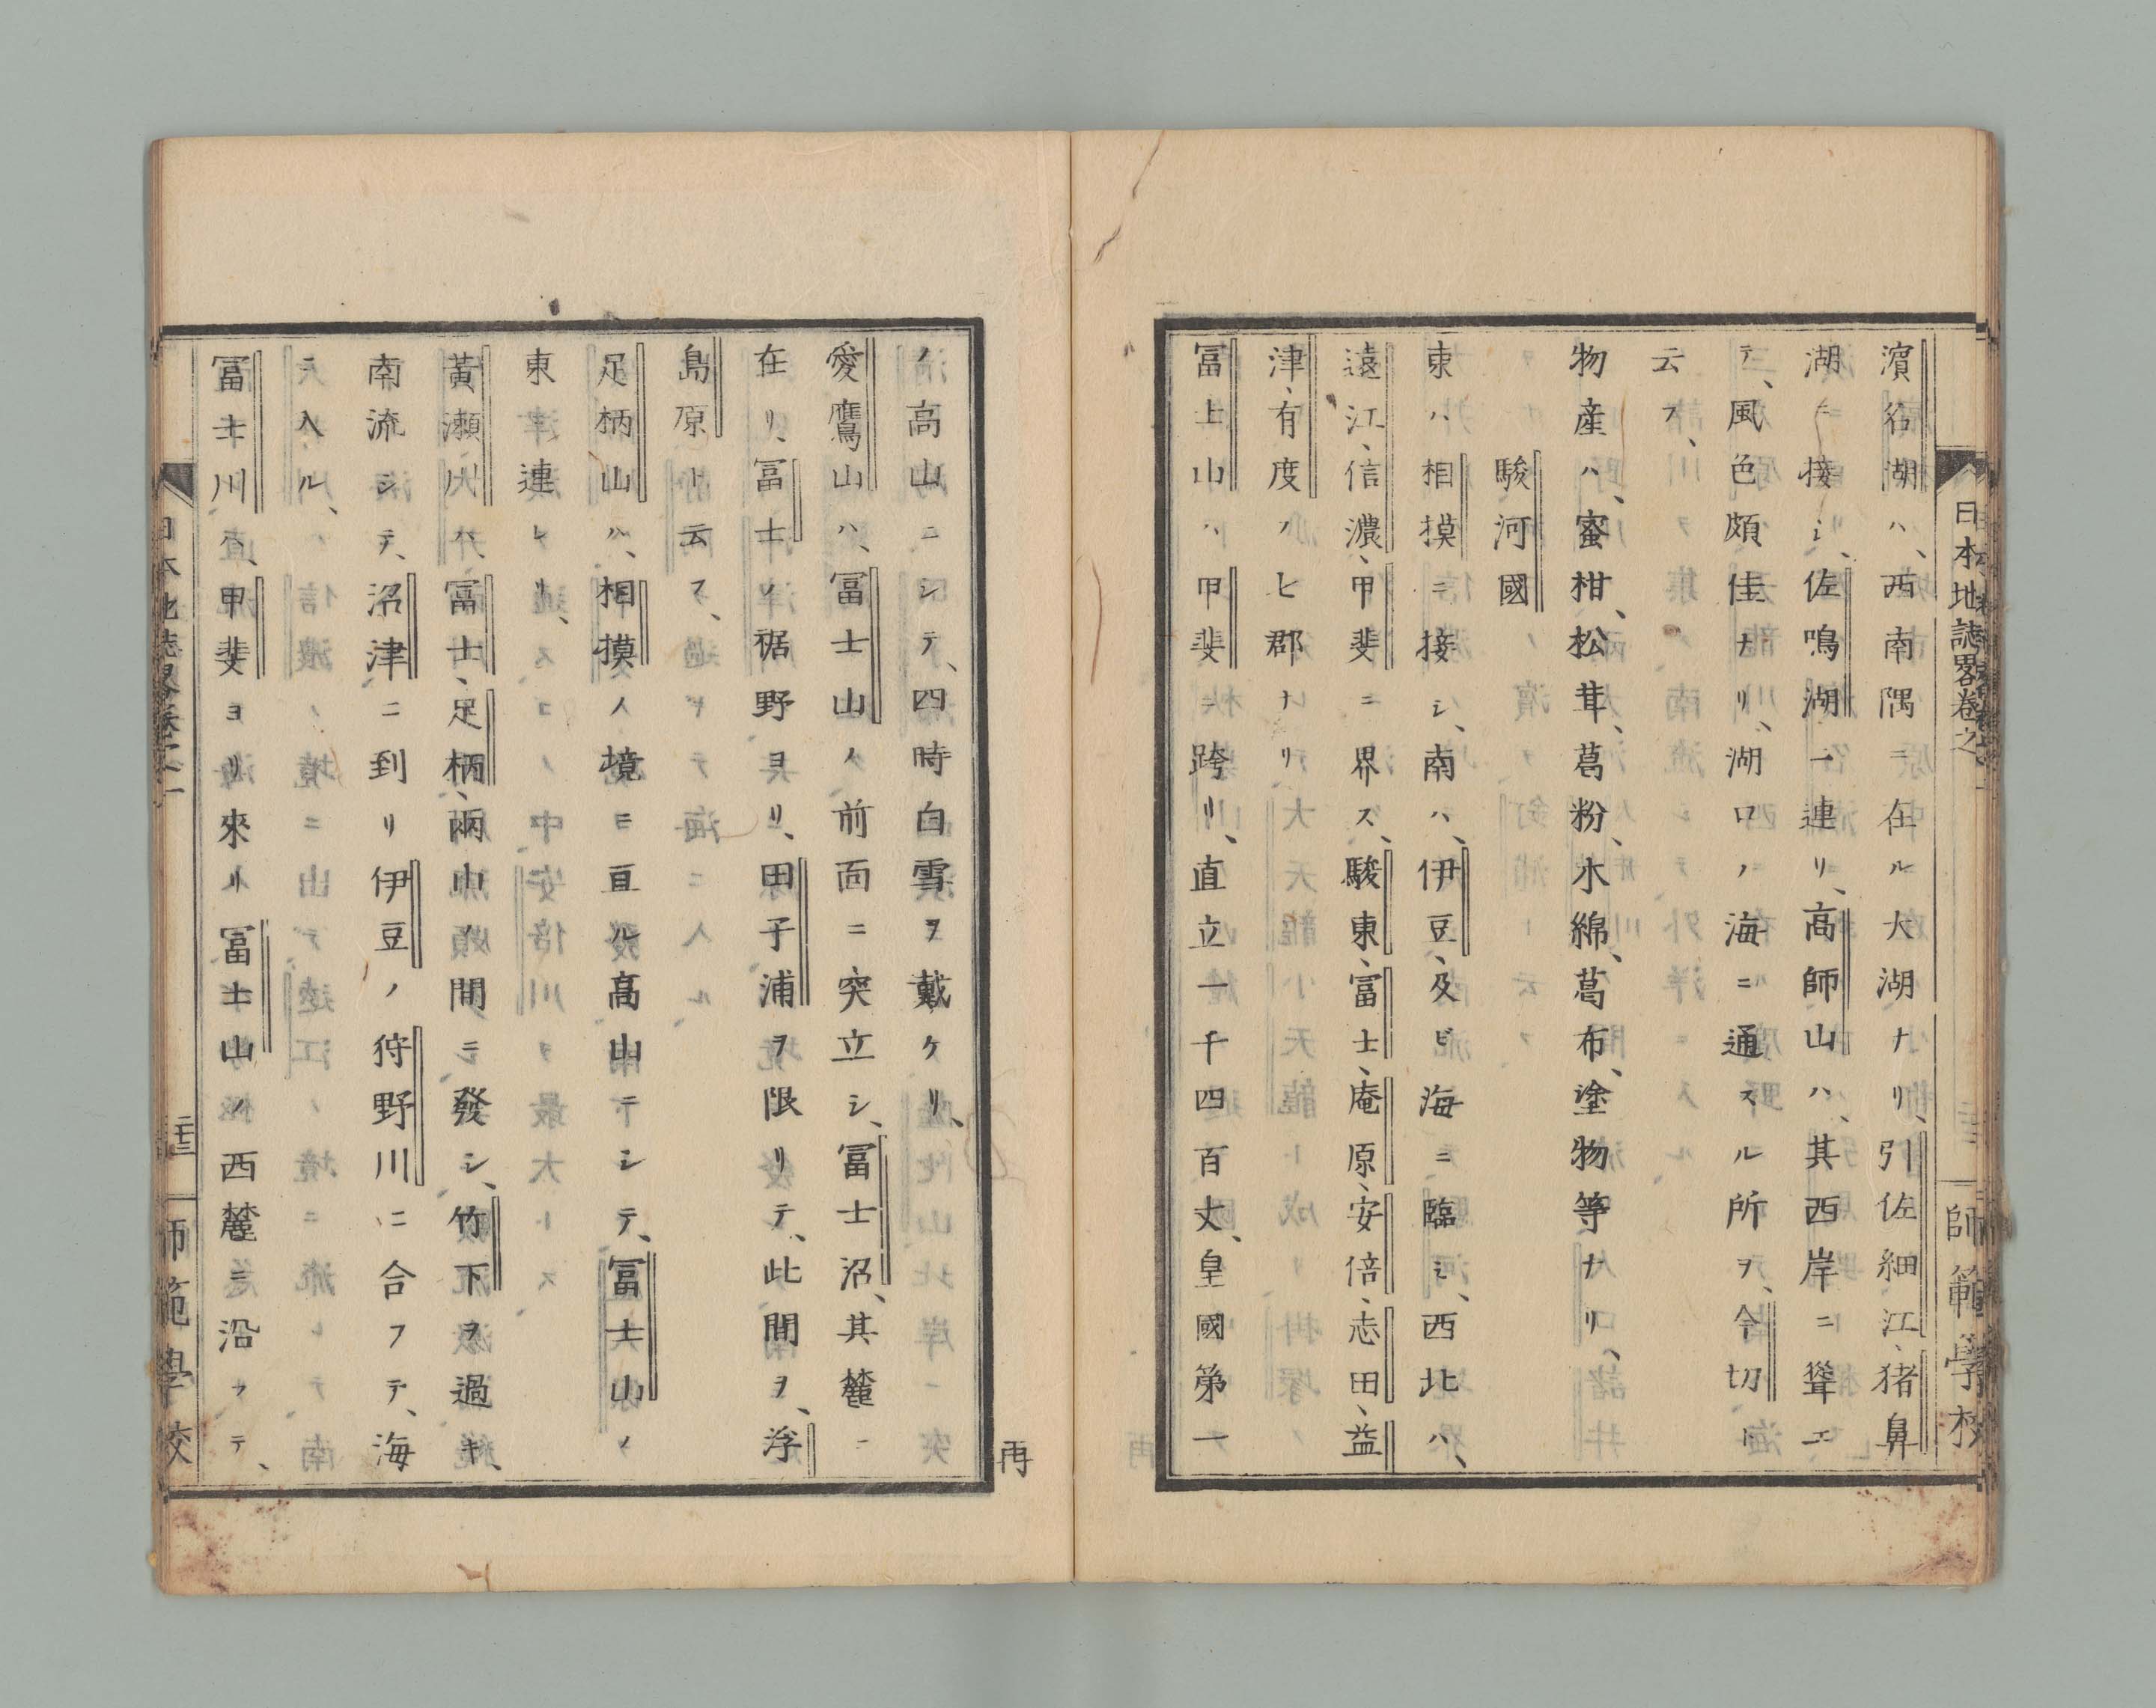 日本地誌畧卷之一
師範學校
濵名湖ハ、西南隅ニ在ル大湖ナリ、引佐細江、猪鼻
湖ニ接シ、佐鳴湖ニ連リ、高師山ハ、其西岸ニ聳エ
テ、風色頗佳ナリ、湖口ノ海ニ通スル所ヲ、今切ト
云フ、
物産ハ、蜜柑、松茸、葛粉、木綿、葛布、塗物等ナリ、
駿河國
東ハ相摸ニ接シ、南ハ、伊豆、及ビ海ニ臨ミ、西北ハ、
遠江、信濃、甲斐ニ界ス、駿東、富士、庵原、安倍、志田、益
津、有度ノ七郡ナリ
冨士山ハ、甲斐ニ跨リ、直立一千四百丈、皇國第一
ノ高山ニシテ、四時白雪ヲ戴ケリ、
愛鷹山ハ、冨士山ノ前面ニ突立シ、冨士沼、其麓ニ
在リ、冨士ノ裾野ヨリ、田子浦ヲ限リテ、此間ヲ、浮
島原ト云フ、
足柄山ハ、相摸ノ境ニ亘ル高山ニシテ、冨士山ノ
東ニ連レリ、
黃瀬川ハ、冨士、足柄、兩山ノ間ニ發シ、竹下ヲ過キ、
南流シテ、沼津ニ到リ伊豆ノ狩野川ニ合フテ、海
ニ入ル、
冨士川ハ、甲斐ヨリ來リ冨士山ノ西麓ニ沿フテ、
再
日本地誌畧卷之一
二十三
師範學校